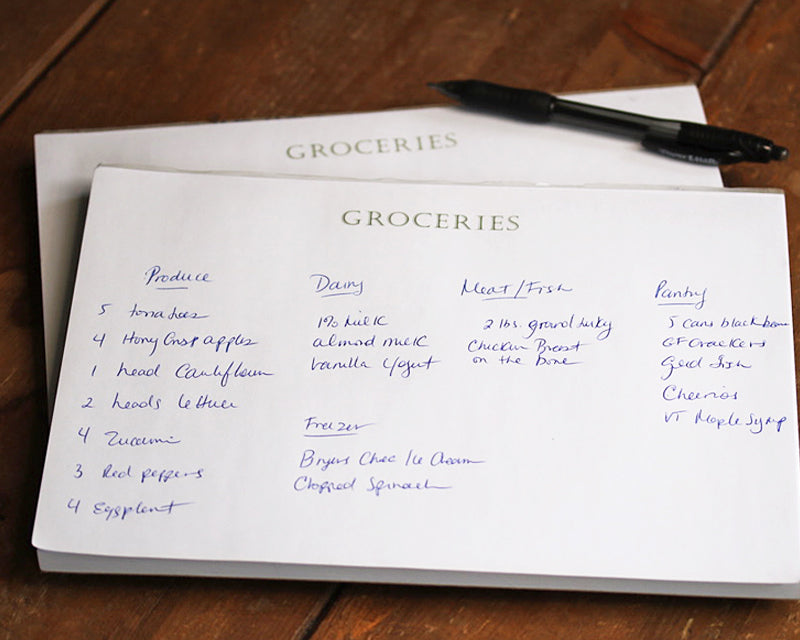 GROCERIES
GROCERIES
Produce
5 tomatoes
4 Hony Crisp apples
1 head Cauliflower
2 heads lettuce
4 Zuccini
3 Red peppers
4 Eggplant
Dairy
1% Milk
almond milk
Vanilla Yogurt
Freezer
Bryers Choc Ice Cream
Chopped Spinach
Meat/Fish
2 lbs. ground turky
Chicken Breast
on the bone
Pantry
5 cans black beans
GF Crackers
Gold fish
Cheerios
VT Maple Syrup